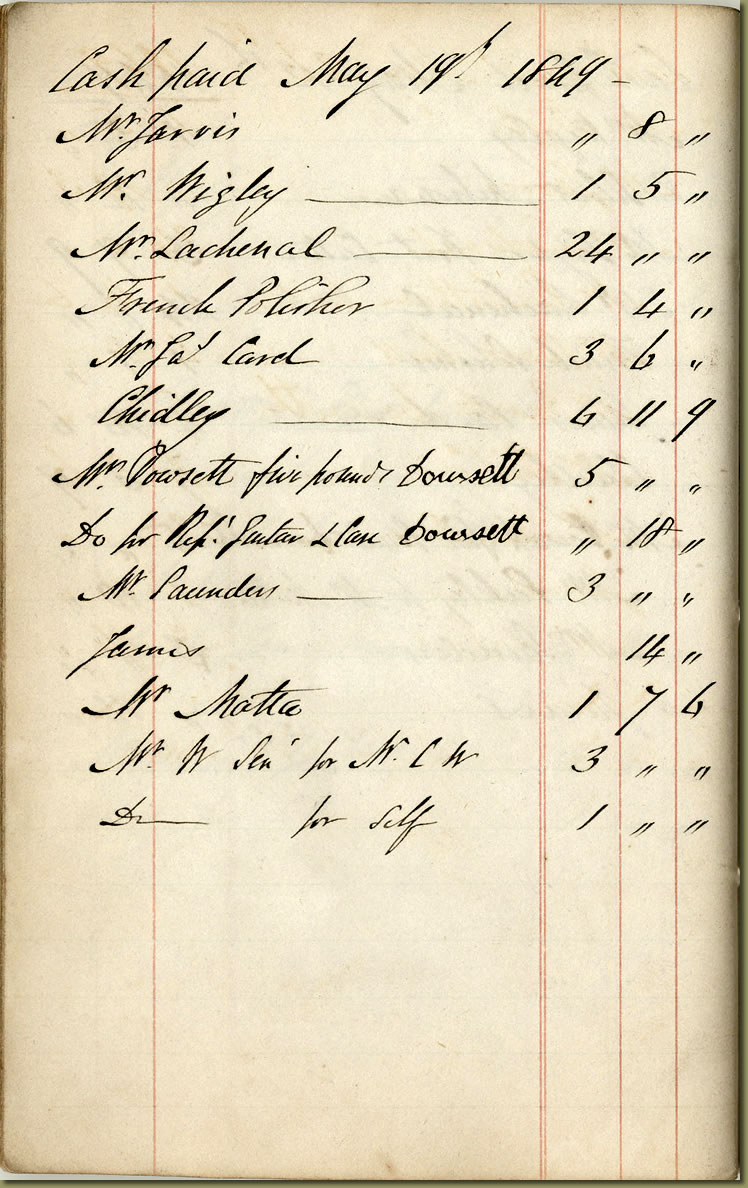 Cash paid May 19th 1849 -
Mr. Jarvis " 8 "
Mr. Wigley 1 5 "
Mr. Lachenal 24 " "
French Polisher 1 4 "
Mr. Jas Card 3 6 "
Chidley 6 11 9
Mr. Dowsett five pounds Dowsett 5 " "
Do for Repg Guitar & Case Dowsett " 18 "
Mr. Saunders 3 " "
James 14 "
Mr Matta 1 7 6
Mr. W Senr for Mr. C W 3 " "
Do for Self 1 " "